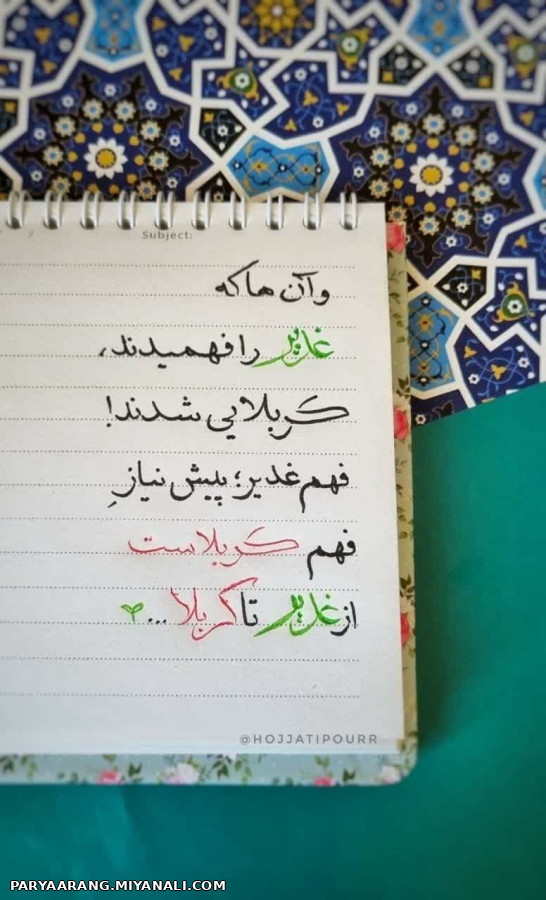 Subject:
وآن ها که
غدیر را فهمیدند،
کربلایی شدند!
فهم غدیر؛ پیش نیازِ
فهم کربلاست
از غدیر تا کربلا...
@HOJJATIPOURR
PARYAARANG.MIYANALI.COM